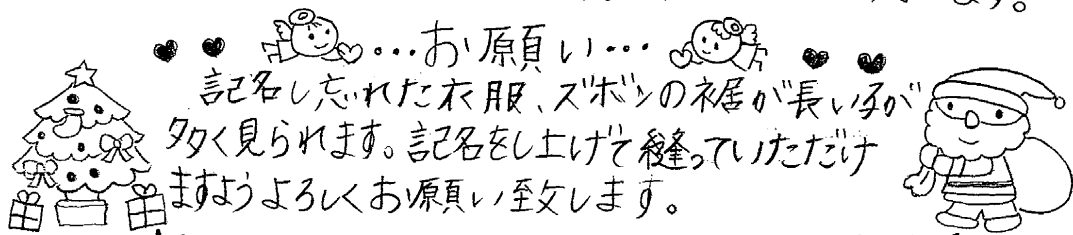 ます。
…お願い…
記名し忘れた衣服、ズボンの裾が長い子が
多く見られます。記名をし上げて縫っていただけ
ますようよろしくお願い致します。